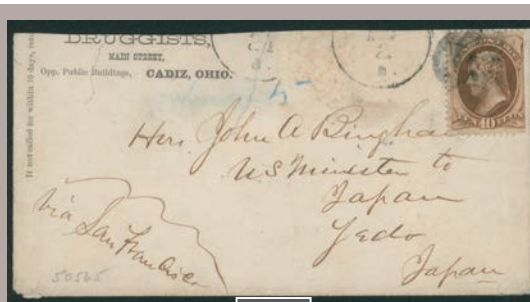 DRUGGISTS,
MAIN STREET,
Opp. Public Buildings, CADIZ, OHIO.
If not called for within 10 days,
Hon. John A Bingham
US Minister to
Japan
Yedo
Japan
via San Francisco
50565
10